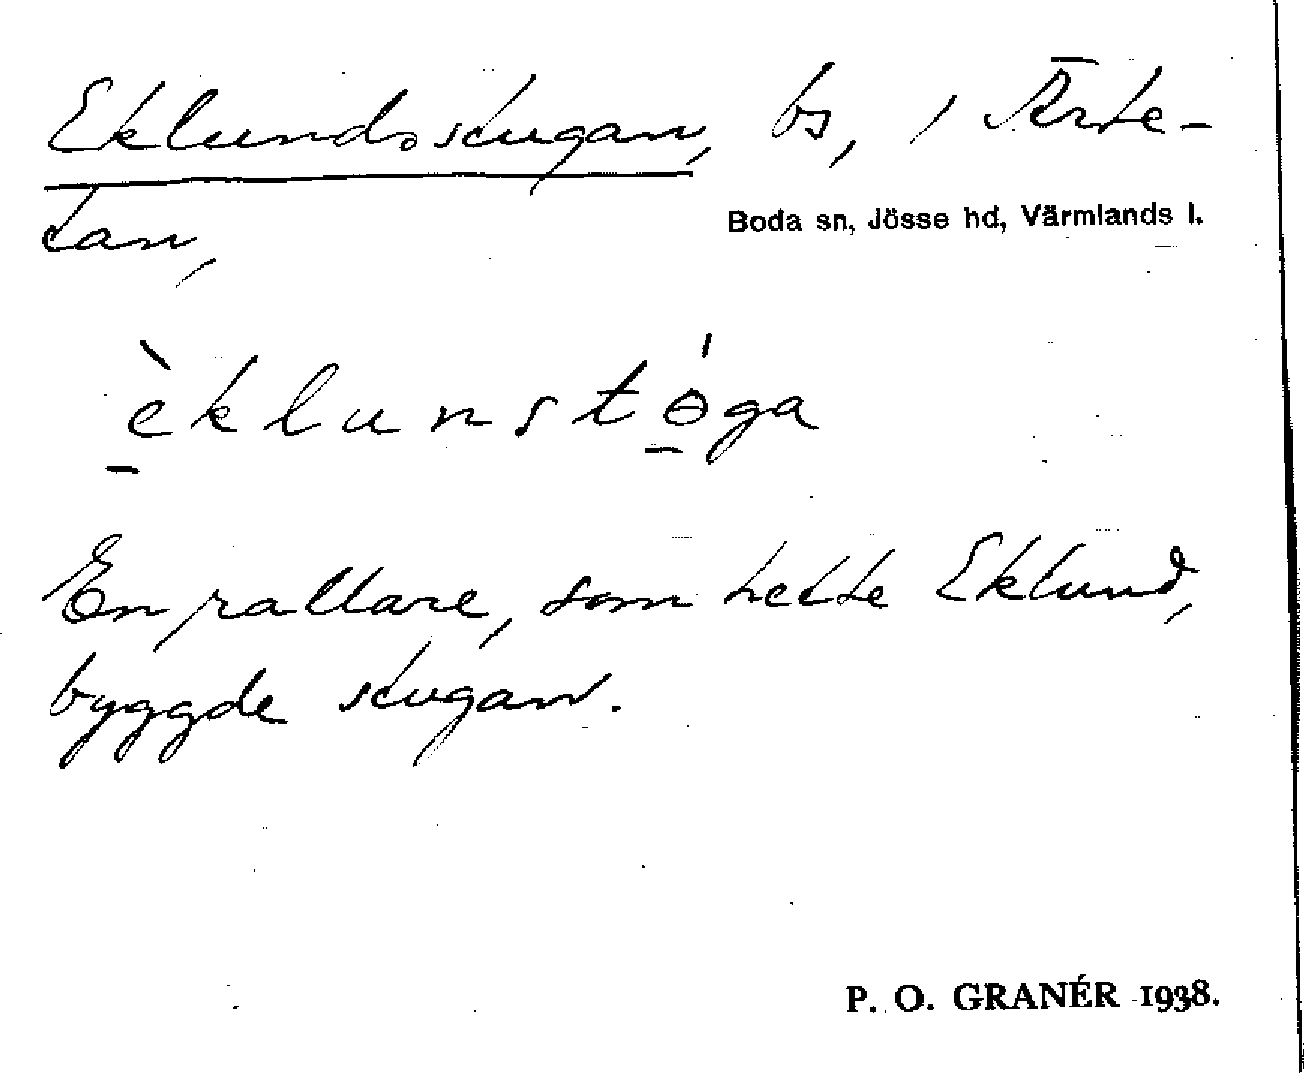 Eklundsstugan, bs, i Ärte-
tan,
Boda sn, Jösse hd, Värmlands l.
è̱klunstɵ̱́ga
En rallare, som hette Eklund,
byggde stugan.
P. O. GRANÉR 1938.